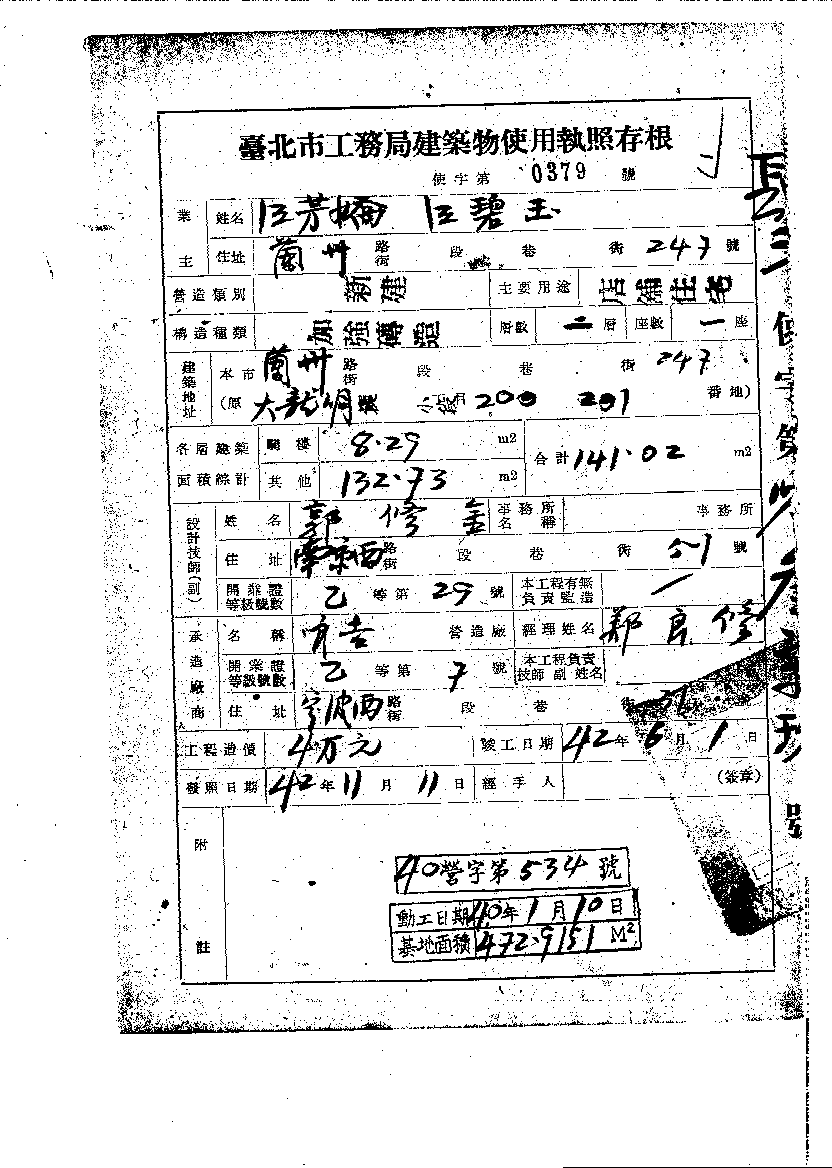 臺北市工務局建築物使用執照存根
使字第 0379 號
業主 姓名 江芳 江碧玉
住址 蘭州 路街 段 巷 街 247 號
營造類別 新建 主要用途 店鋪住宅
構造種類 加強磚造 層數 二 層 座數 一 座
建築地址 本市 蘭州 路街 段 巷 街 247
(原 大龍峒 段 小段 200 201 番地)
各層建築面積綜計 騎樓 8.29 m2 合計 141.02 m2
其他 132.73 m2
設計技師(副) 姓名 郭修 事務所名稱 事務所
住址 南京西 路街 段 巷 街 51 號
開業證等級號數 乙 等第 29 號 本工程有無負責監造 一
承造廠商 名稱 營造廠 經理姓名 鄭良修
開業證等級號數 乙 等第 7 號 本工程負責技師副姓名
住址 寧波西 路街 段 巷 街 號
工程造價 4万元 竣工日期 42年6月1日
發照日期 42年11月11日 經手人 (簽章)
附註
40營字第534號
動工日期 40年1月10日
基地面積 472.9151 M²